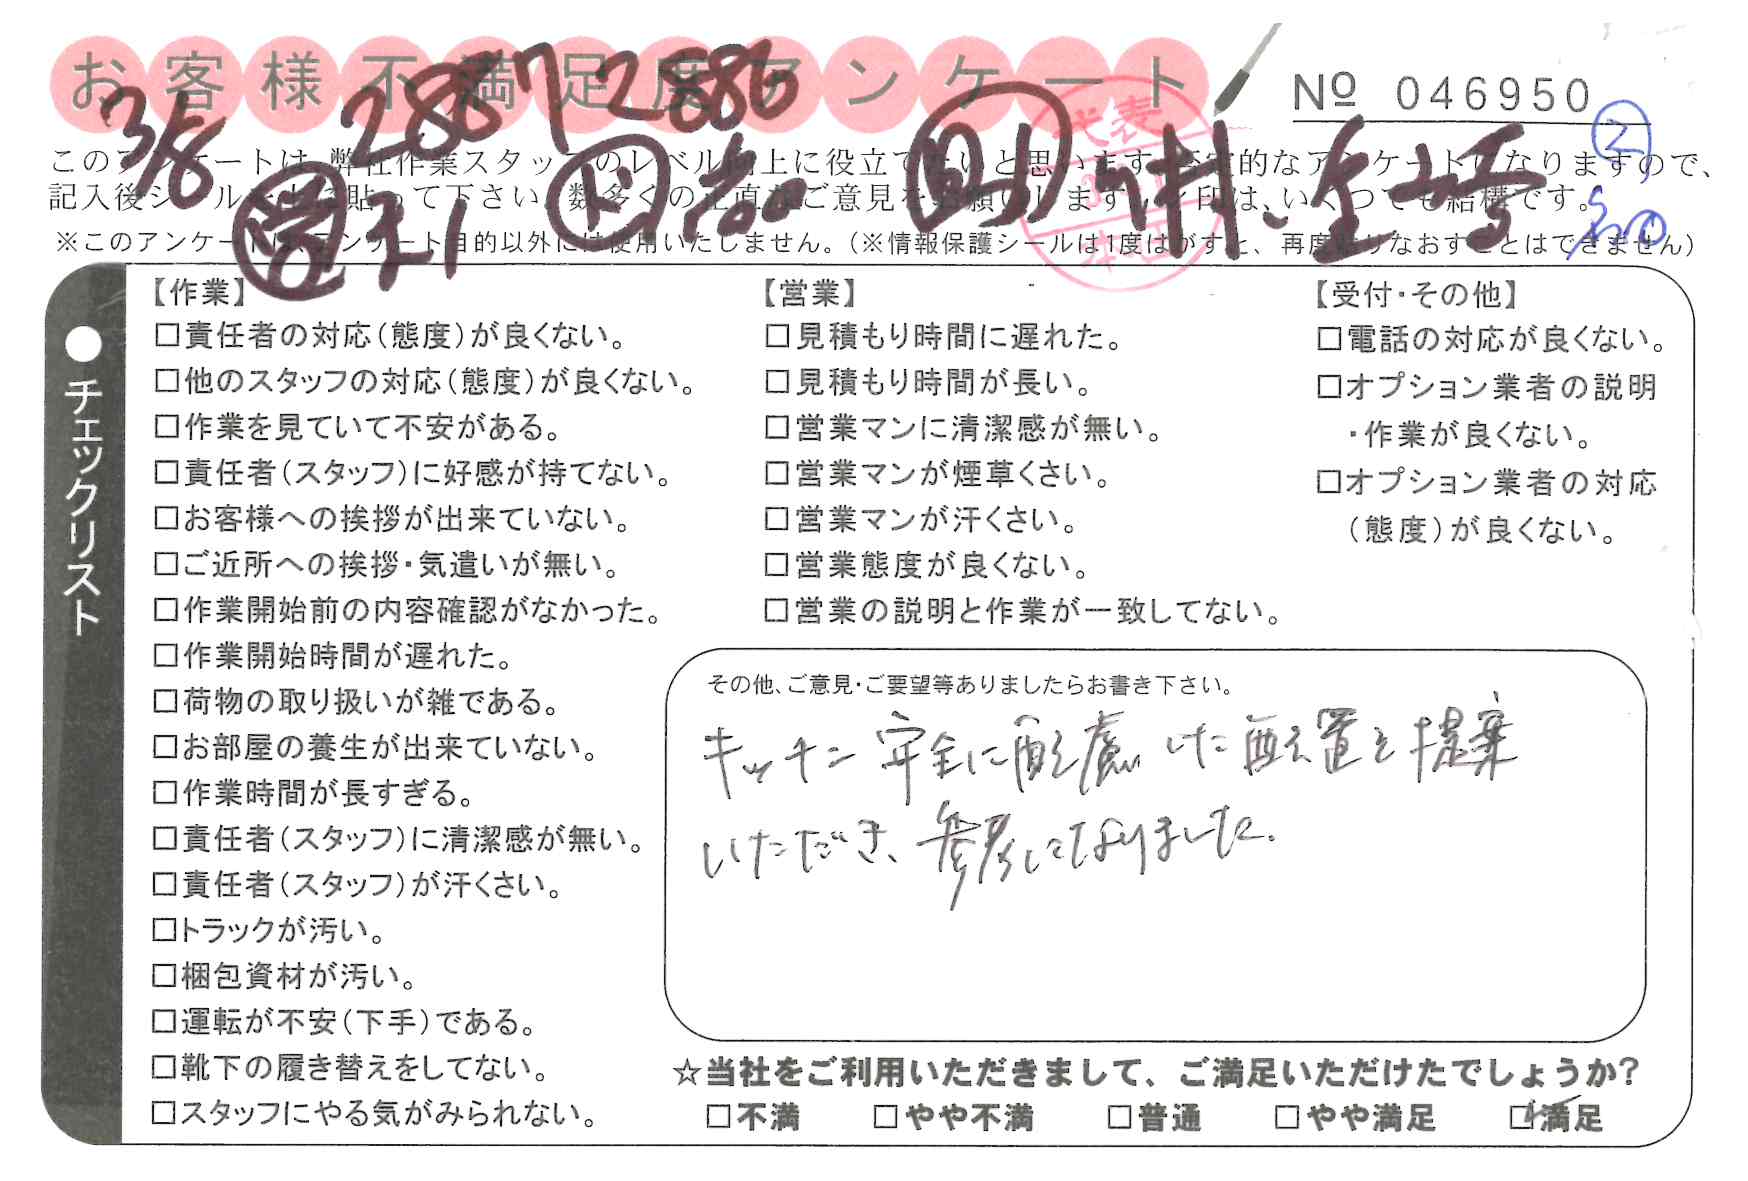 お客様不満足度アンケート
№ 046950
3/8 2887 2886
②
このアンケートは、弊社作業スタッフのレベル向上に役立てたいと思います。否定的なアンケートになりますので、
記入後シールを上に貼って下さい。数多くの正直なご意見をお願いします。レ印は、いくつでも結構です。
※このアンケートは、アンケート目的以外には使用いたしません。(※情報保護シールは1度はがすと、再度貼りなおすことはできません)
代表
●チェックリスト
【作業】
□責任者の対応(態度)が良くない。
□他のスタッフの対応(態度)が良くない。
□作業を見ていて不安がある。
□責任者(スタッフ)に好感が持てない。
□お客様への挨拶が出来ていない。
□ご近所への挨拶・気遣いが無い。
□作業開始前の内容確認がなかった。
□作業開始時間が遅れた。
□荷物の取り扱いが雑である。
□お部屋の養生が出来ていない。
□作業時間が長すぎる。
□責任者(スタッフ)に清潔感が無い。
□責任者(スタッフ)が汗くさい。
□トラックが汚い。
□梱包資材が汚い。
□運転が不安(下手)である。
□靴下の履き替えをしてない。
□スタッフにやる気がみられない。
【営業】
□見積もり時間に遅れた。
□見積もり時間が長い。
□営業マンに清潔感が無い。
□営業マンが煙草くさい。
□営業マンが汗くさい。
□営業態度が良くない。
□営業の説明と作業が一致してない。
【受付・その他】
□電話の対応が良くない。
□オプション業者の説明
・作業が良くない。
□オプション業者の対応
(態度)が良くない。
その他、ご意見・ご要望等ありましたらお書き下さい。
キッチン安全に配慮いた配置を提案
いただき、参考になりました。
☆当社をご利用いただきまして、ご満足いただけたでしょうか?
□不満 □やや不満 □普通 □やや満足 ☑満足